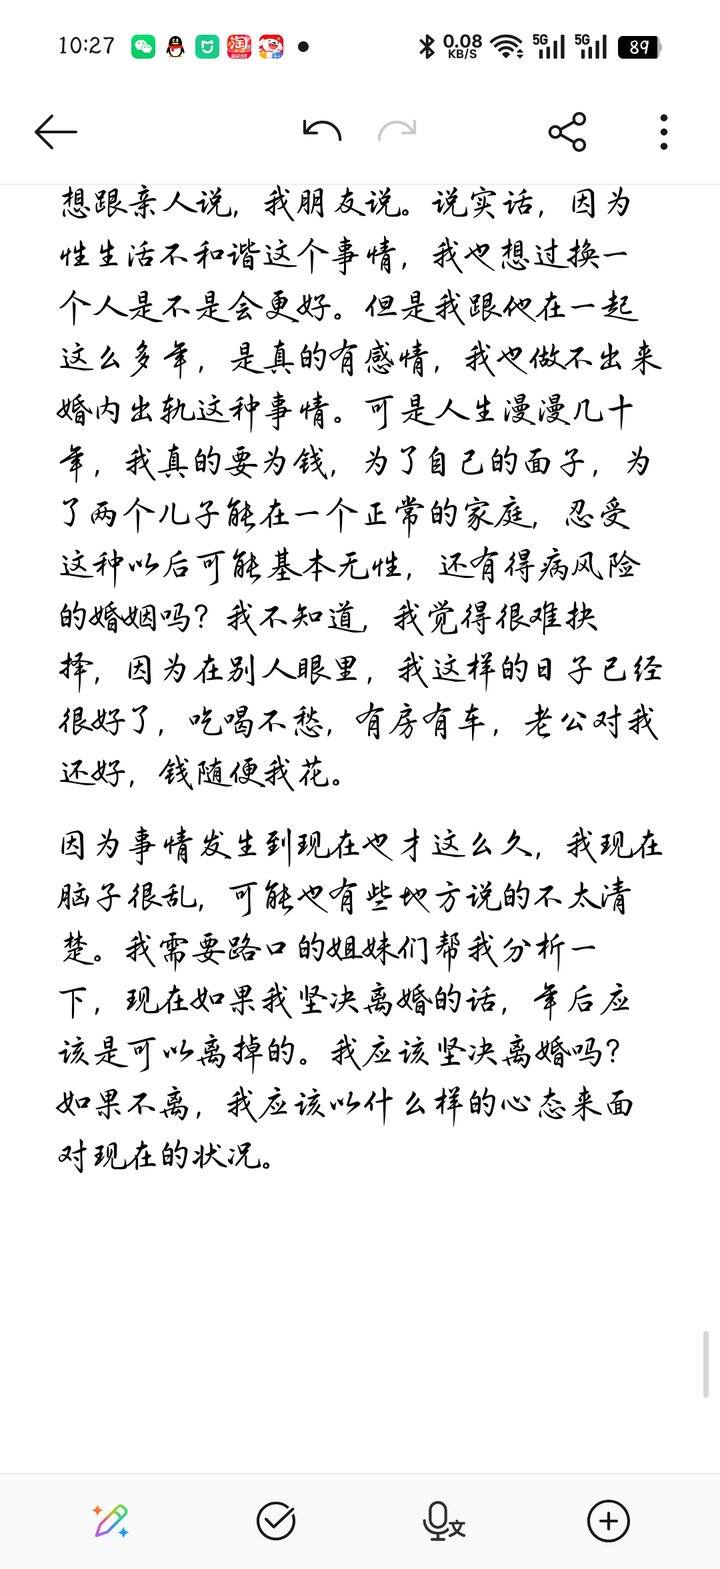 10:27
淘
0.08
KB/S
5G
5G
89
想跟亲人说，我朋友说。说实话，因为
性生活不和谐这个事情，我也想过换一
个人是不是会更好。但是我跟他在一起
这么多年，是真的有感情，我也做不出来
婚内出轨这种事情。可是人生漫漫几十
年，我真的要为钱，为了自己的面子，为
了两个儿子能在一个正常的家庭，忍受
这种以后可能基本无性，还有得病风险
的婚姻吗？我不知道，我觉得很难抉
择，因为在别人眼里，我这样的日子已经
很好了，吃喝不愁，有房有车，老公对我
还好，钱随便我花。
因为事情发生到现在也才这么久，我现在
脑子很乱，可能也有些地方说的不太清
楚。我需要路口的姐妹们帮我分析一
下，现在如果我坚决离婚的话，年后应
该是可以离掉的。我应该坚决离婚吗？
如果不离，我应该以什么样的心态来面
对现在的状况。
文